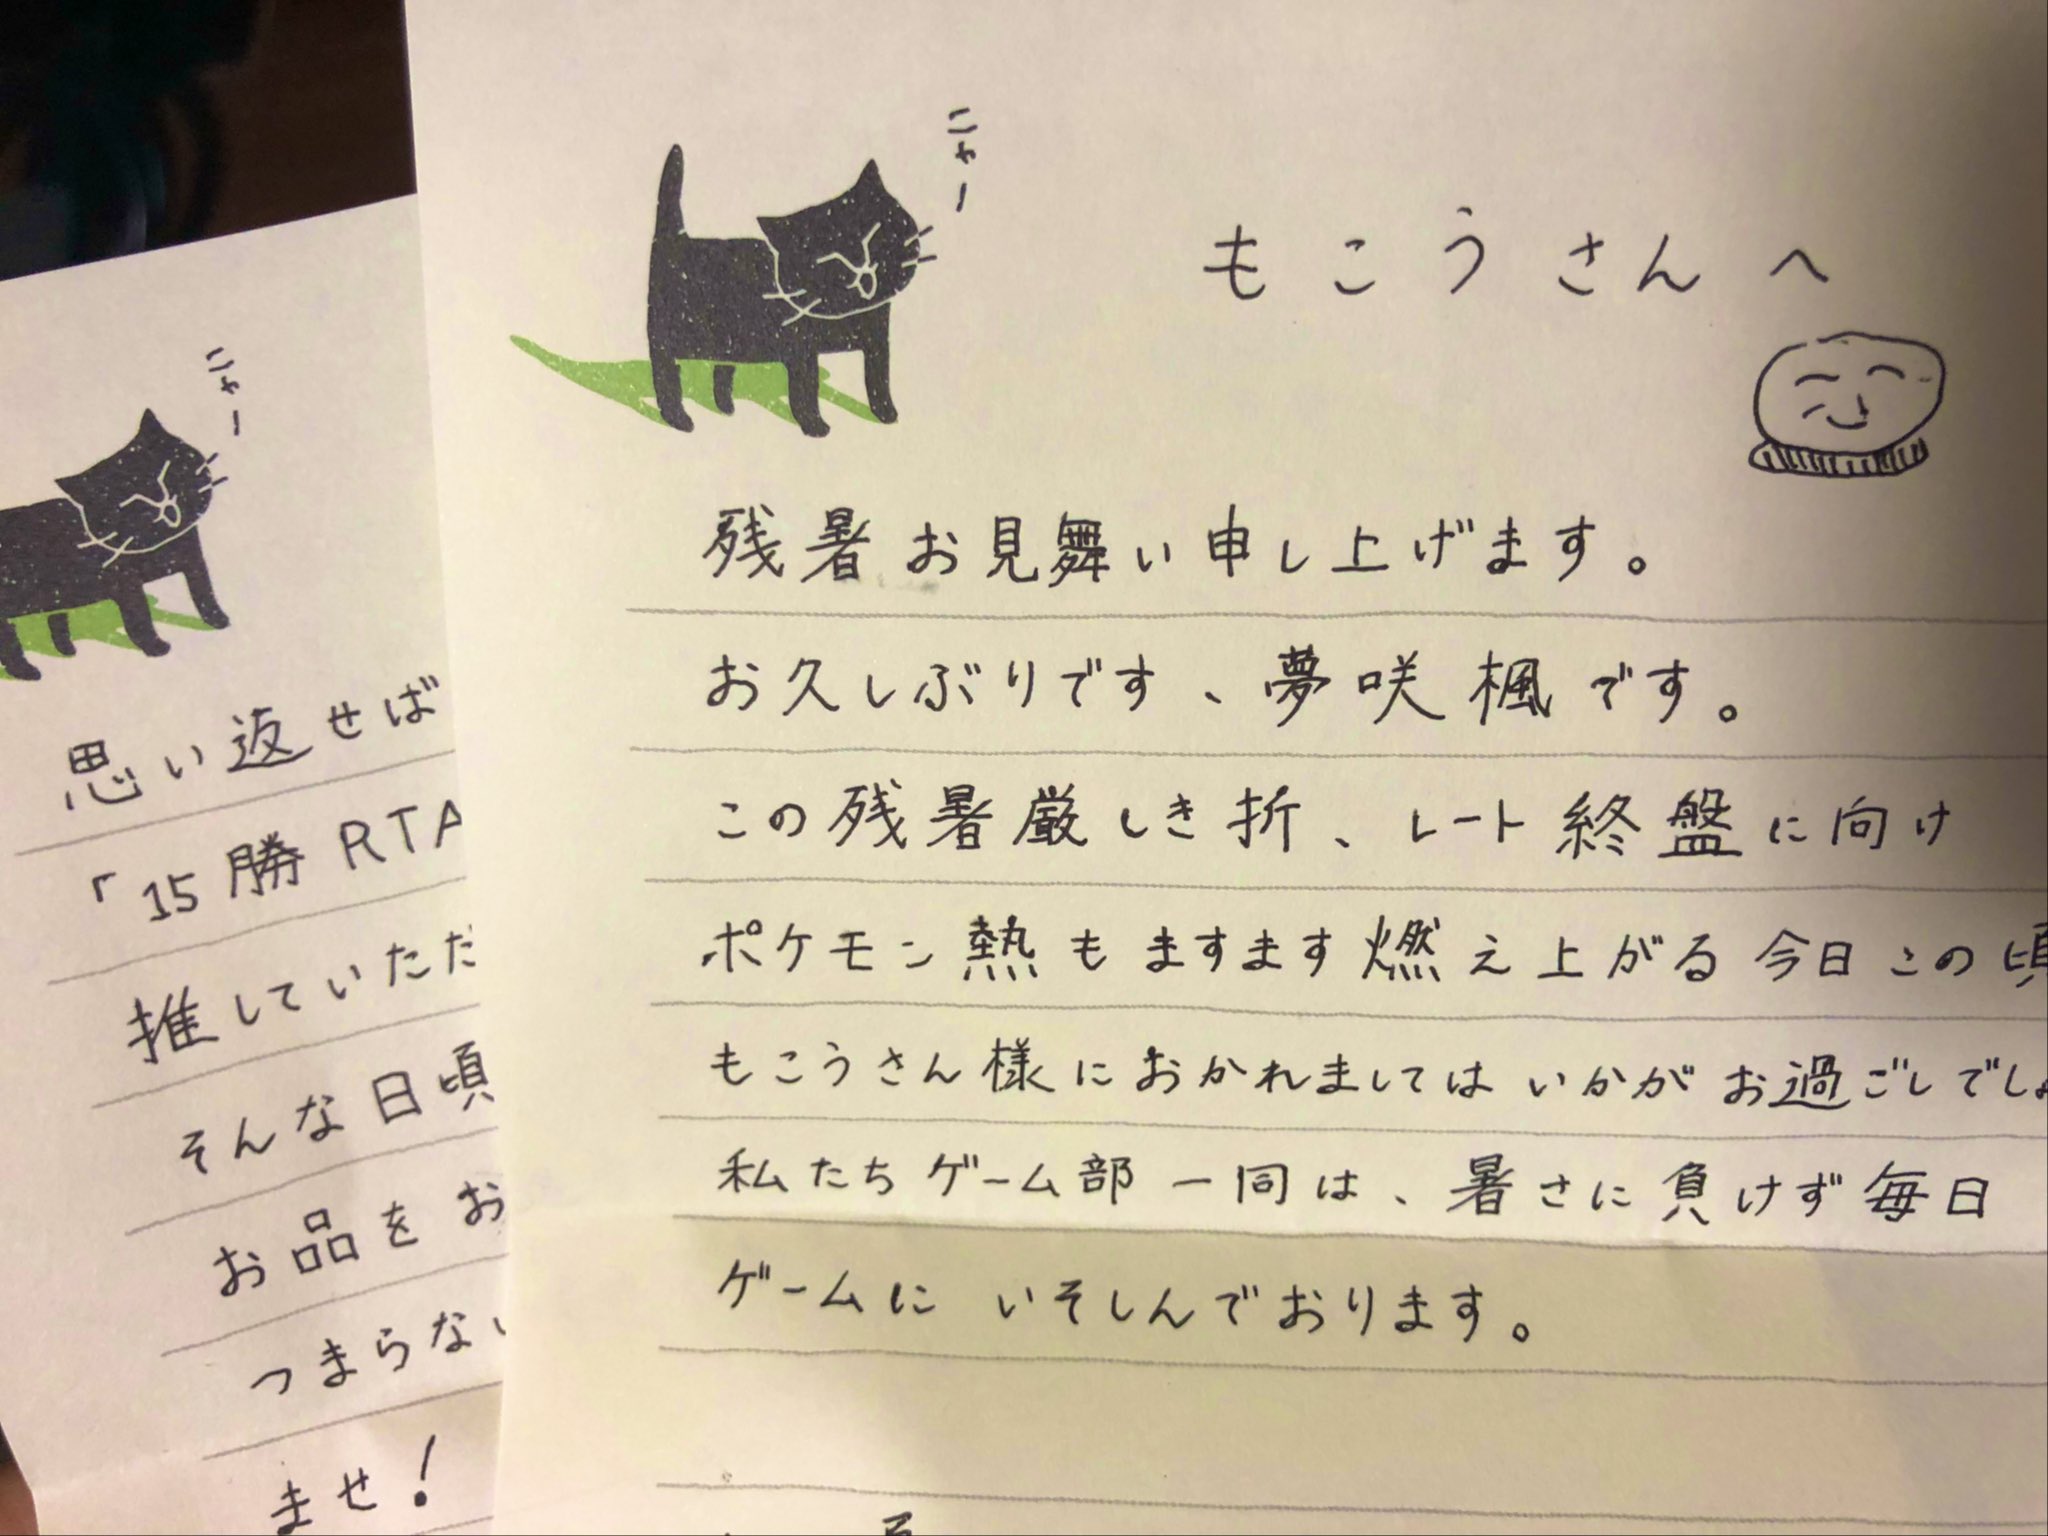 ニャー
もこうさんへ
残暑お見舞い申し上げます。
お久しぶりです、夢咲楓です。
この残暑厳しき折、レート終盤に向け
ポケモン熱もますます燃え上がる今日この頃
もこうさん様におかれましてはいかがお過ごしでしょ
私たちゲーム部一同は、暑さに負けず毎日
ゲームにいそしんでおります。
ニャー
思い返せば
「15勝RTA
推していただ
そんな日頃
お品をお
つまらない
ませ!